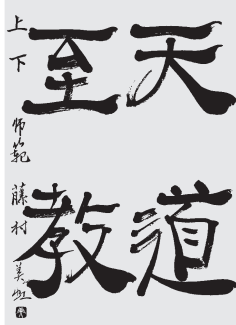 天道
至教
上下 師範 藤村美